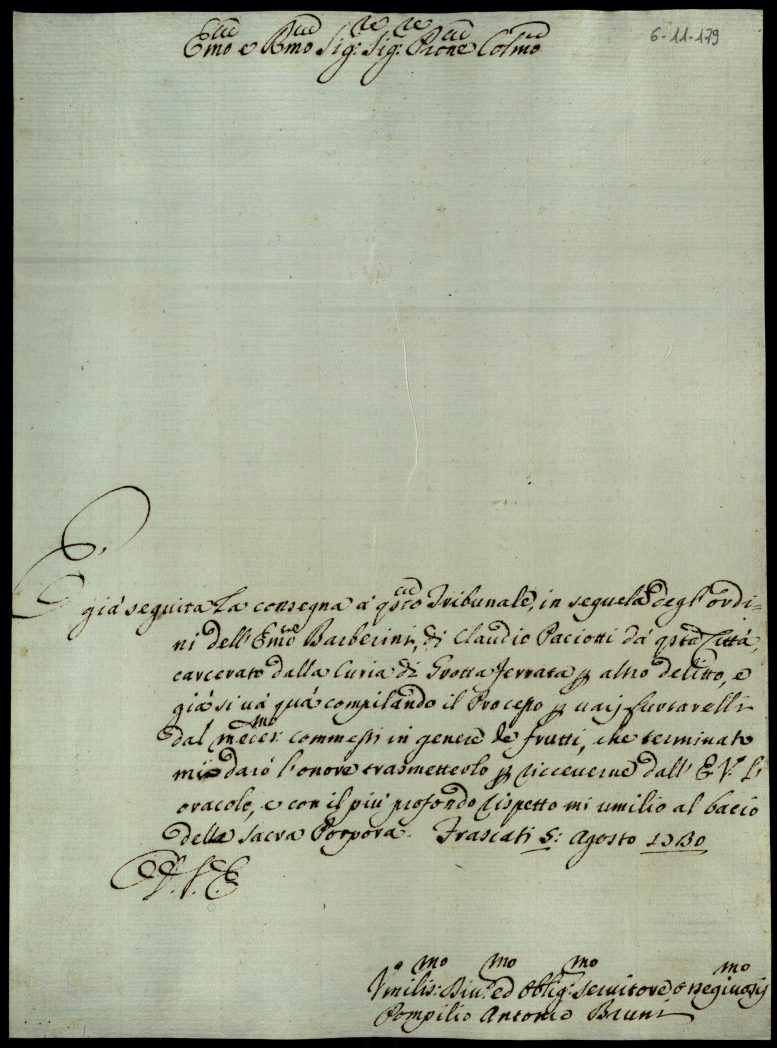 Emo e Rmo Sig:re Sig:re Prone Colmo
6-11-179
È già seguita la consegna à qsto Tribunale, in seguela degl'ordi-
ni dell'Emo Barberini, di Claudio Paciotti dà qsta Città,
carcerato dalla Curia di Grotta Ferrata p altro delitto, e
già si uà quà compilando il Processo p uarj furtarelli
dal medmo commessi in genere de frutti, che terminato
mi darò l'onore trasmetterlo p riceuerne dall'E.V. l'
oracolo, e con il più profondo rispetto mi umilio al bacio
della Sacra Porpora. Frascati 5: Agosto
D.V.E.
Vmilis:mo Diu:mo ed Oblig:mo Seruitore ossequiosismo
Pompilio Antonio Bruni